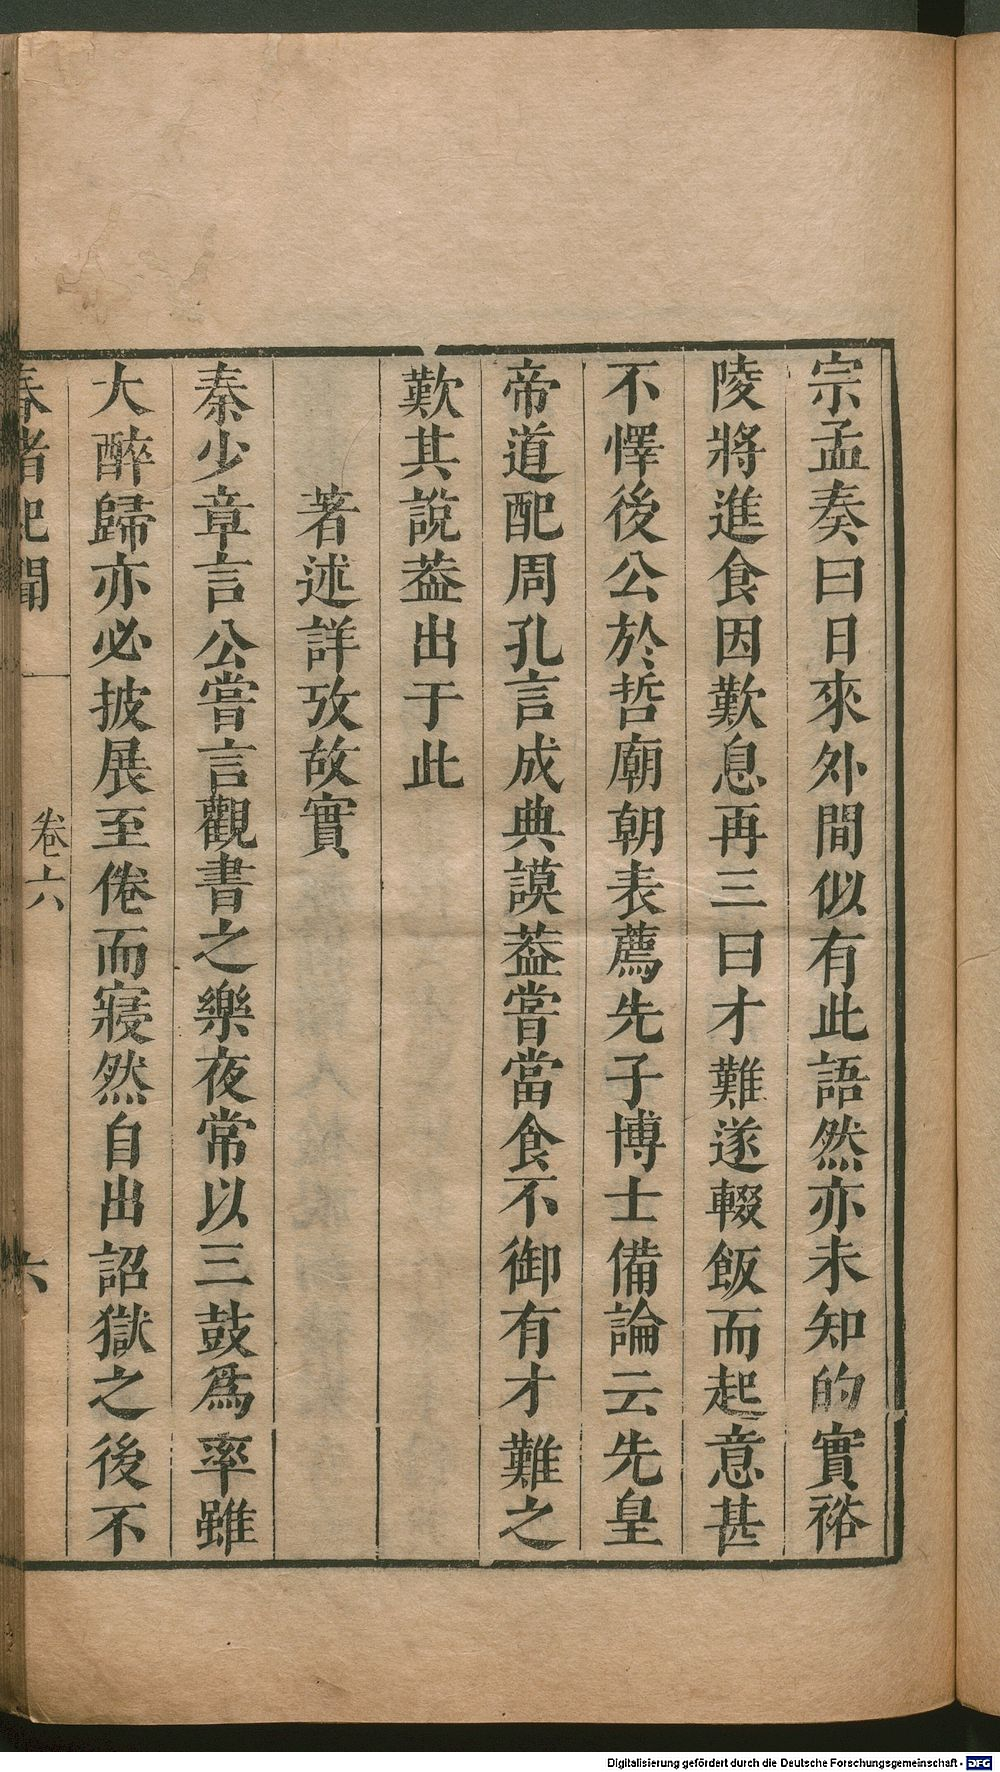 宗孟奏曰日來外間似有此語然亦未知的實裕
陵將進食因歎息再三曰才難遂輟飯而起意甚
不懌後公於哲廟朝表薦先子博士備論云先皇
帝道配周孔言成典謨葢嘗當食不御有才難之
歎其說葢出于此
著述詳攷故實
秦少章言公嘗言觀書之樂夜常以三鼓爲率雖
大醉歸亦必披展至倦而寢然自出詔獄之後不
春渚紀聞
卷六
六
Digitalisierung gefördert durch die Deutsche Forschungsgemeinschaft - DFG